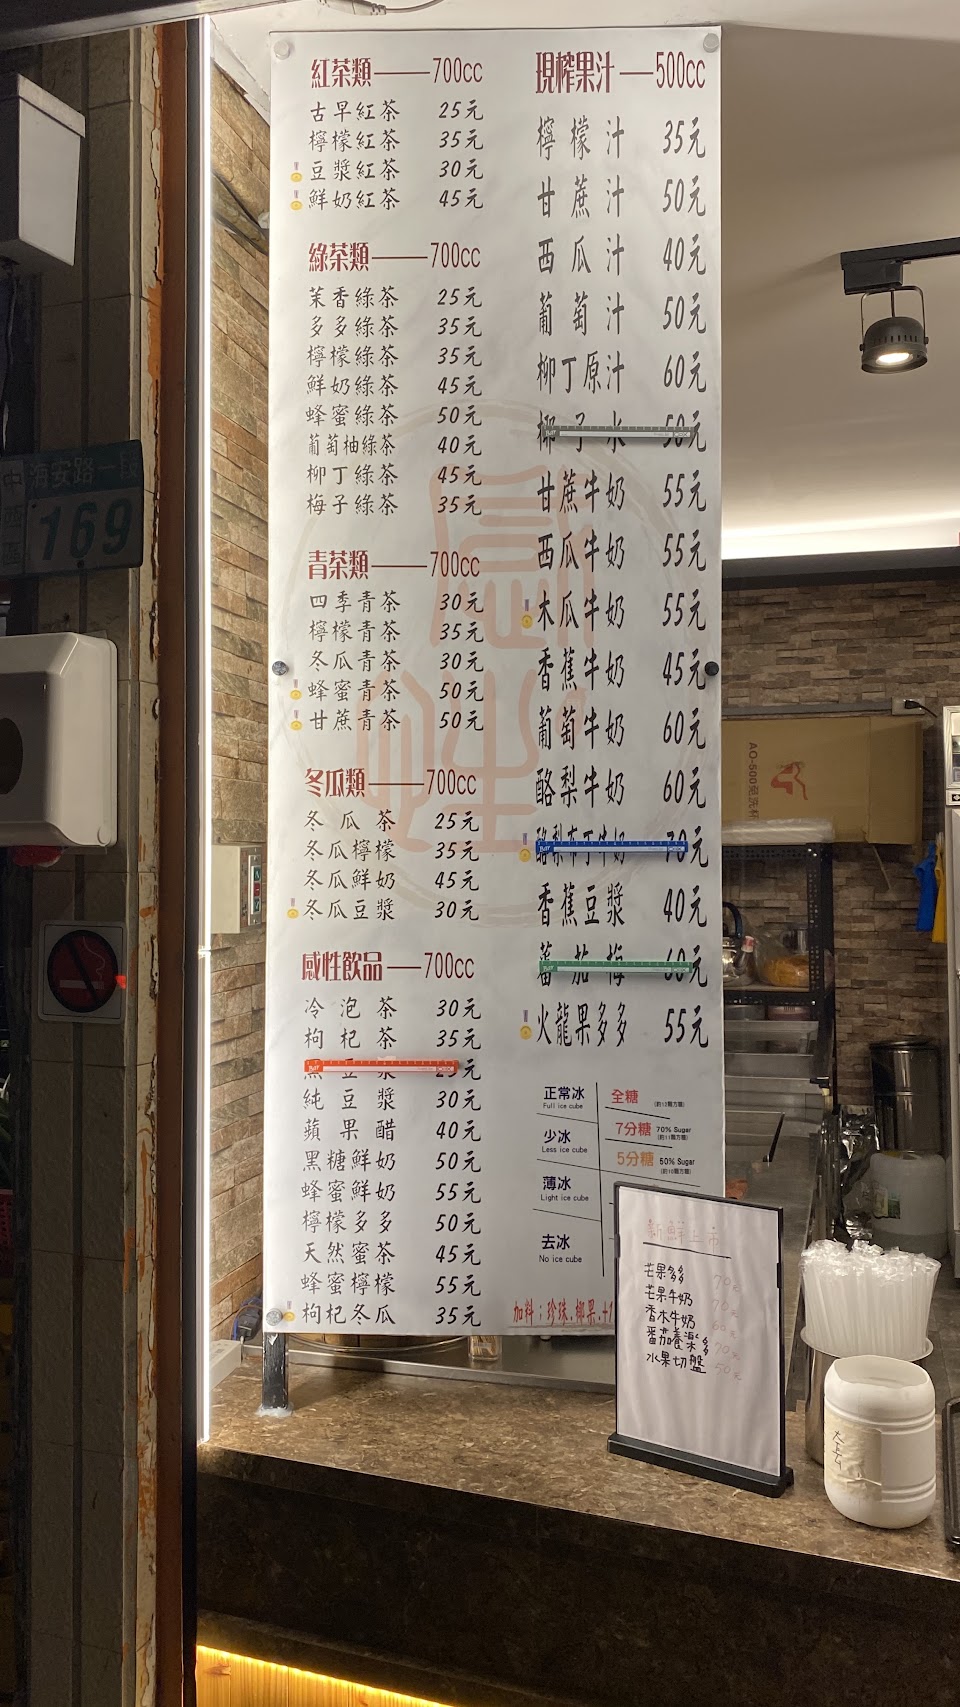 紅茶類——700cc
古早紅茶 25元
檸檬紅茶 35元
豆漿紅茶 30元
鮮奶紅茶 45元
綠茶類——700cc
茉香綠茶 25元
多多綠茶 35元
檸檬綠茶 35元
鮮奶綠茶 45元
蜂蜜綠茶 50元
葡萄柚綠茶 40元
柳丁綠茶 45元
梅子綠茶 35元
青茶類——700cc
四季青茶 30元
檸檬青茶 35元
冬瓜青茶 30元
蜂蜜青茶 50元
甘蔗青茶 50元
冬瓜類——700cc
冬瓜茶 25元
冬瓜檸檬 35元
冬瓜鮮奶 45元
冬瓜豆漿 30元
感性飲品——700cc
冷泡茶 30元
枸杞茶 35元
黑豆漿 25元
純豆漿 30元
蘋果醋 40元
黑糖鮮奶 50元
蜂蜜鮮奶 55元
檸檬多多 50元
天然蜜茶 45元
蜂蜜檸檬 55元
枸杞冬瓜 35元
現榨果汁—500cc
檸檬汁 35元
甘蔗汁 50元
西瓜汁 40元
葡萄汁 50元
柳丁原汁 60元
椰子水 50元
甘蔗牛奶 55元
西瓜牛奶 55元
木瓜牛奶 55元
香蕉牛奶 45元
葡萄牛奶 60元
酪梨牛奶 60元
酪梨布丁牛奶 70元
香蕉豆漿 40元
蕃茄梅 60元
火龍果多多 55元
正常冰
Full ice cube
少冰
Less ice cube
薄冰
Light ice cube
去冰
No ice cube
全糖
7分糖 70% Sugar
5分糖 50% Sugar
加料：珍珠.椰果.+1
新鮮上市
芒果多多 70元
芒果牛奶 70元
香木牛奶 60元
蕃茄養樂多 70元
水果切盤 50元
海安路一段
169
AO-500免洗杯